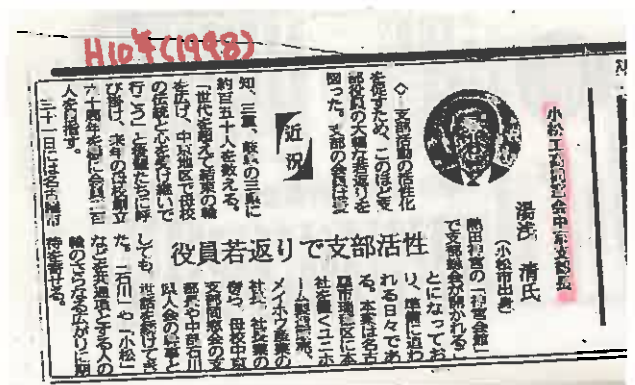 H10年(1998)
小松工高同窓会中京支部長
湯浅 清氏
(小松市出身)
役員若返りで支部活性
近況
◇…支部活動の活性化
を促すため、このほど支
部役員の大幅な若返りを
図った。支部の会員は愛
知、三重、岐阜の三県に
約百五十人を数える。
「世代を超えて結束の輪
を広げ、中京地区で母校
の伝統と心を受け継いで
行こう」と後輩たちに呼
び掛け、来年の母校創立
六十周年を機に会員二百
人を目指す。
三十一日には名古屋市
熱田神宮の「神宮会館」
で支部総会が開かれるこ
とになってお
り、準備に追わ
れる日々であ
る。本業は名古
屋市瑞穂区に本
社を置くユニホ
ーム製造販売、
メイホウ産業の
社長。社長業の
傍ら、母校中京
支部同窓会の支
部長や中部石川
県人会の幹事と
しても、世話を続けてき
た。「石川」や「小松」
などを共通項とする人の
輪のさらなる広がりに期
待を寄せる。